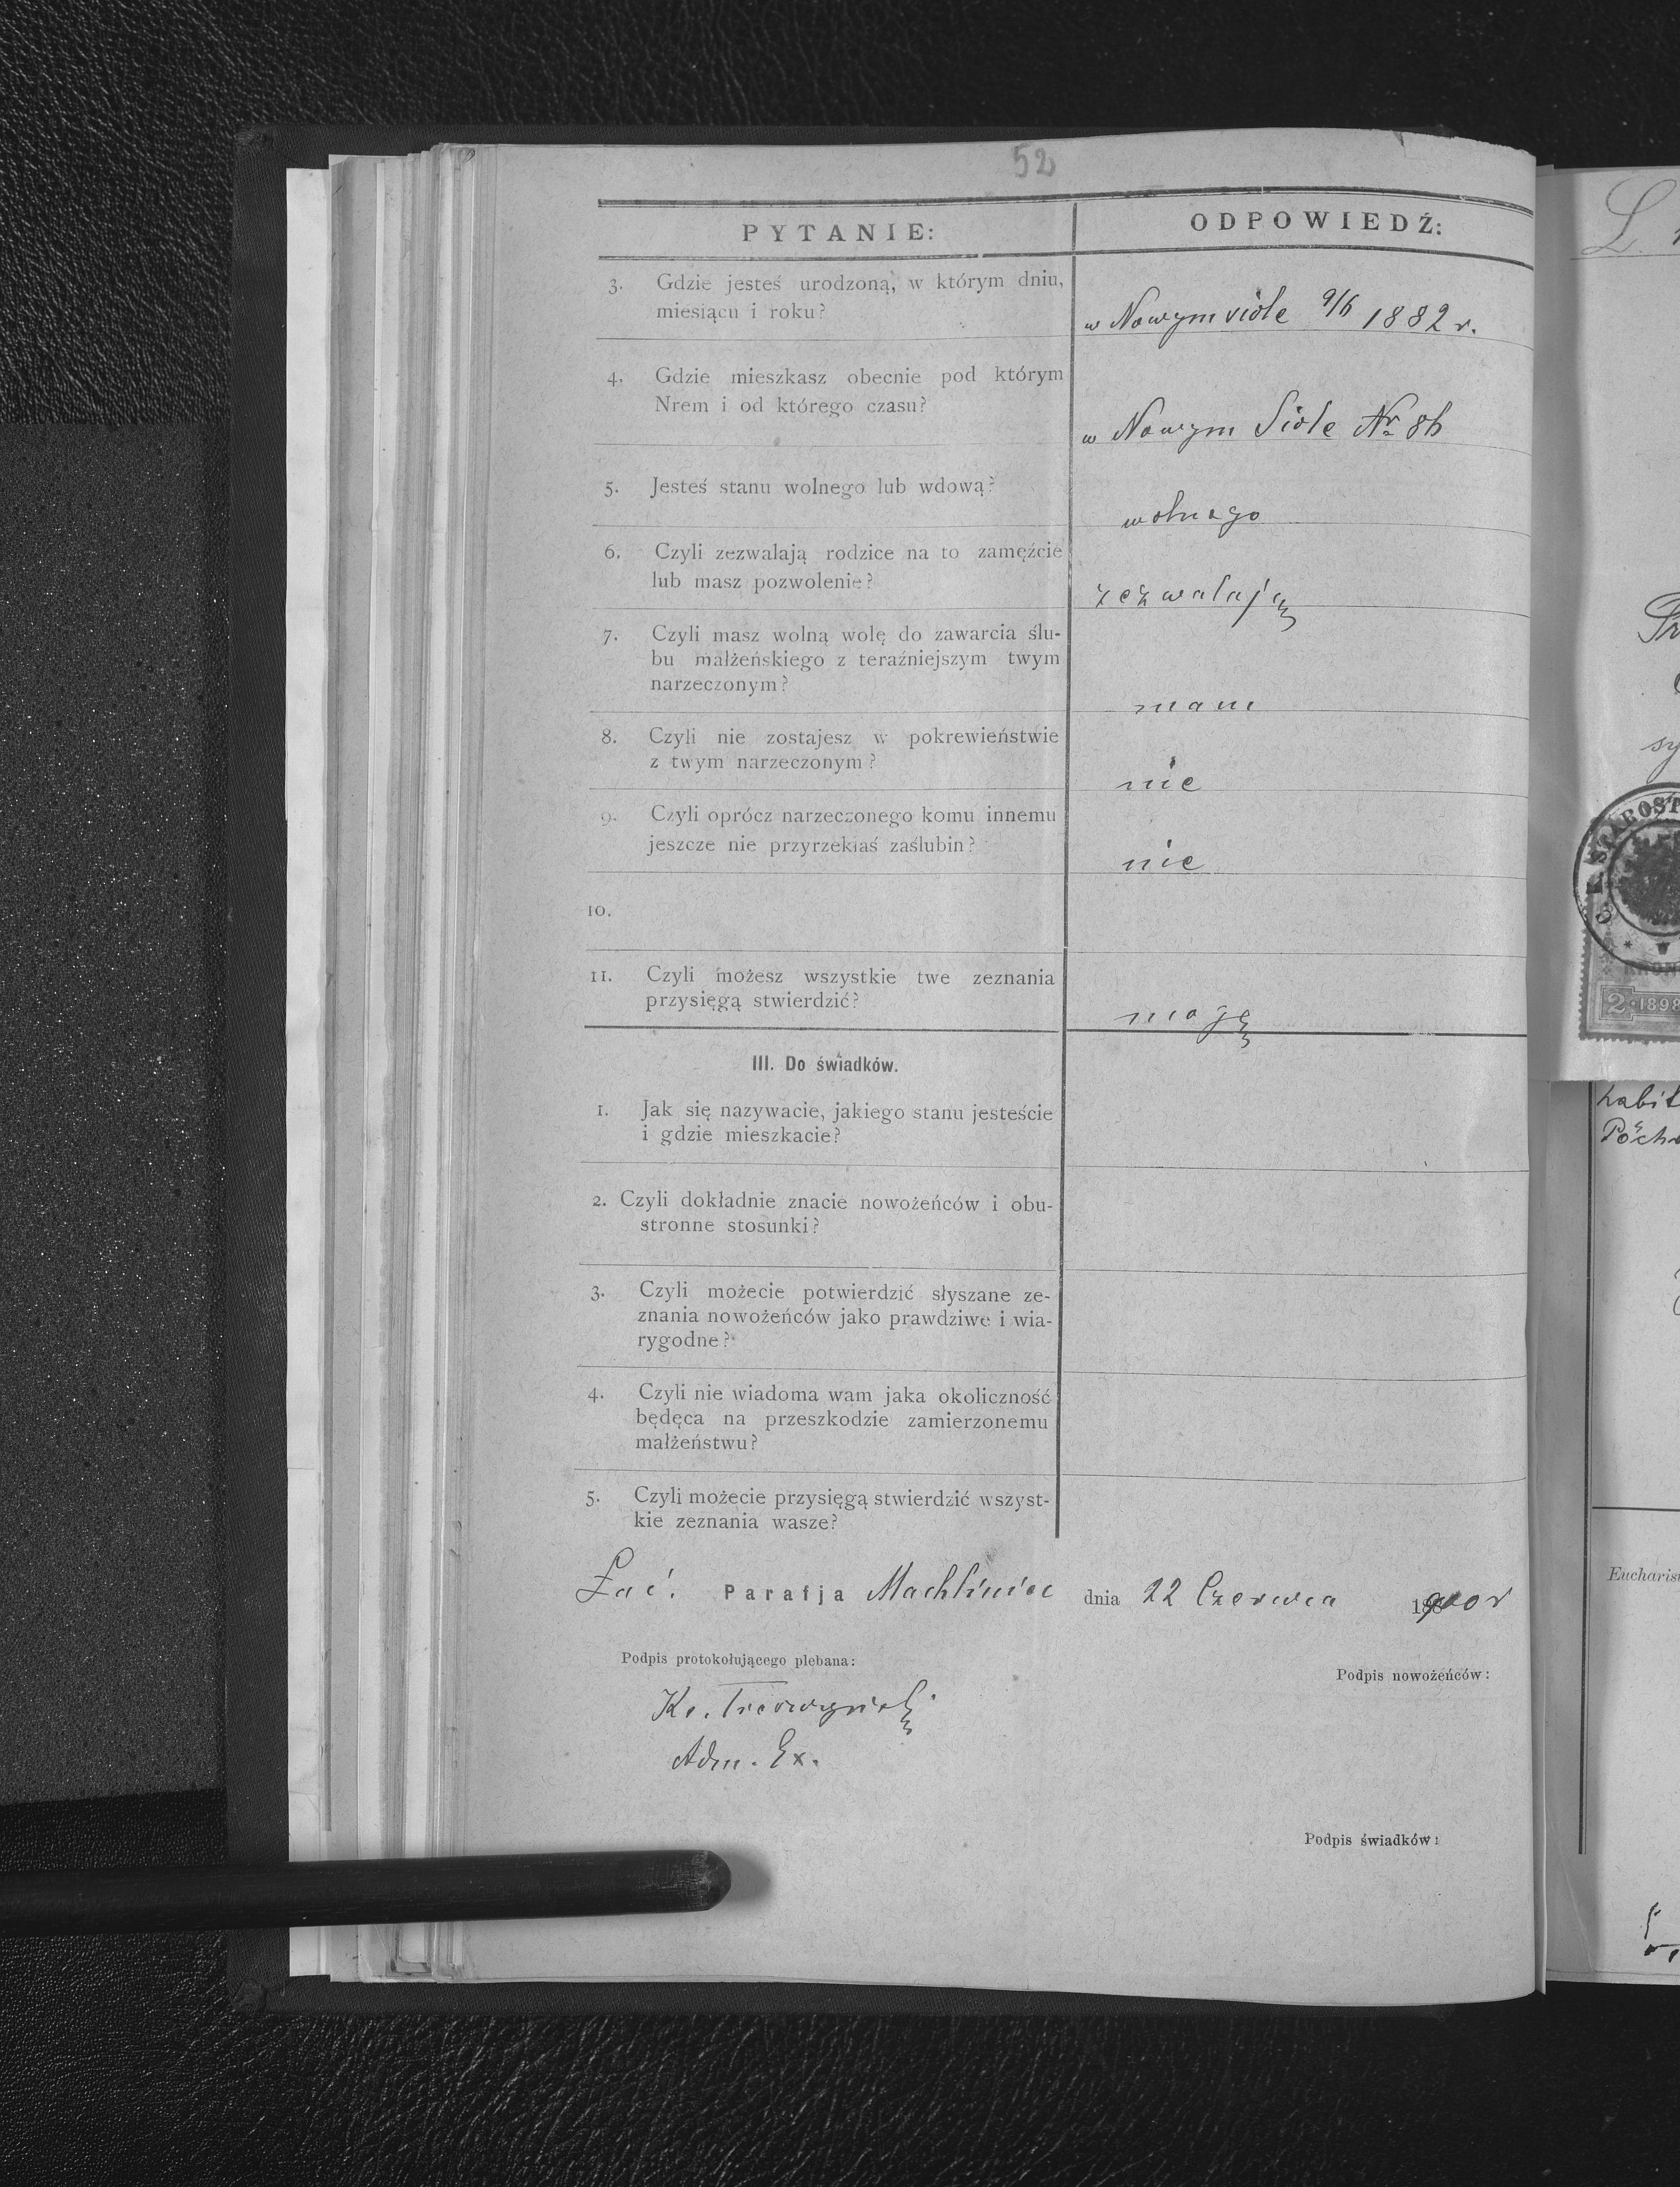 52
PYTANIE:
ODPOWIEDŹ:
3. Gdzie jesteś urodzoną, w którym dniu,
miesiącu i roku?
w Nowym siole 9/6 1882 r.
4. Gdzie mieszkasz obecnie pod którym
Nrem i od którego czasu?
w Nowym Siole Nr 86
5. Jesteś stanu wolnego lub wdową?
wolnego
6. Czyli zezwalają rodzice na to zamęźcie
lub masz pozwolenie?
zezwalają
7. Czyli masz wolną wolę do zawarcia ślu-
bu małżeńskiego z teraźniejszym twym
narzeczonym?
mam
8. Czyli nie zostajesz w pokrewieństwie
z twym narzeczonym?
nie
9. Czyli oprócz narzeczonego komu innemu
jeszcze nie przyrzekłaś zaślubin?
nie
10.
11. Czyli możesz wszystkie twe zeznania
przysięgą stwierdzić?
mogę
III. Do świadków.
1. Jak się nazywacie, jakiego stanu jesteście
i gdzie mieszkacie?
2. Czyli dokładnie znacie nowożeńców i obu-
stronne stosunki?
3. Czyli możecie potwierdzić słyszane ze-
znania nowożeńców jako prawdziwe i wia-
rygodne?
4. Czyli nie wiadoma wam jaka okoliczność
będęca na przeszkodzie zamierzonemu
małżeństwu?
5. Czyli możecie przysięgą stwierdzić wszyst-
kie zeznania wasze?
Łać. Parafja Machliniec dnia 22 Czerwca 1900 r
Podpis protokołującego plebana:
Podpis nowożeńców:
Ks.
Adm. Ex.
Podpis świadków:
L.
STAROST
KRON
2 1898
habit
Eucharis